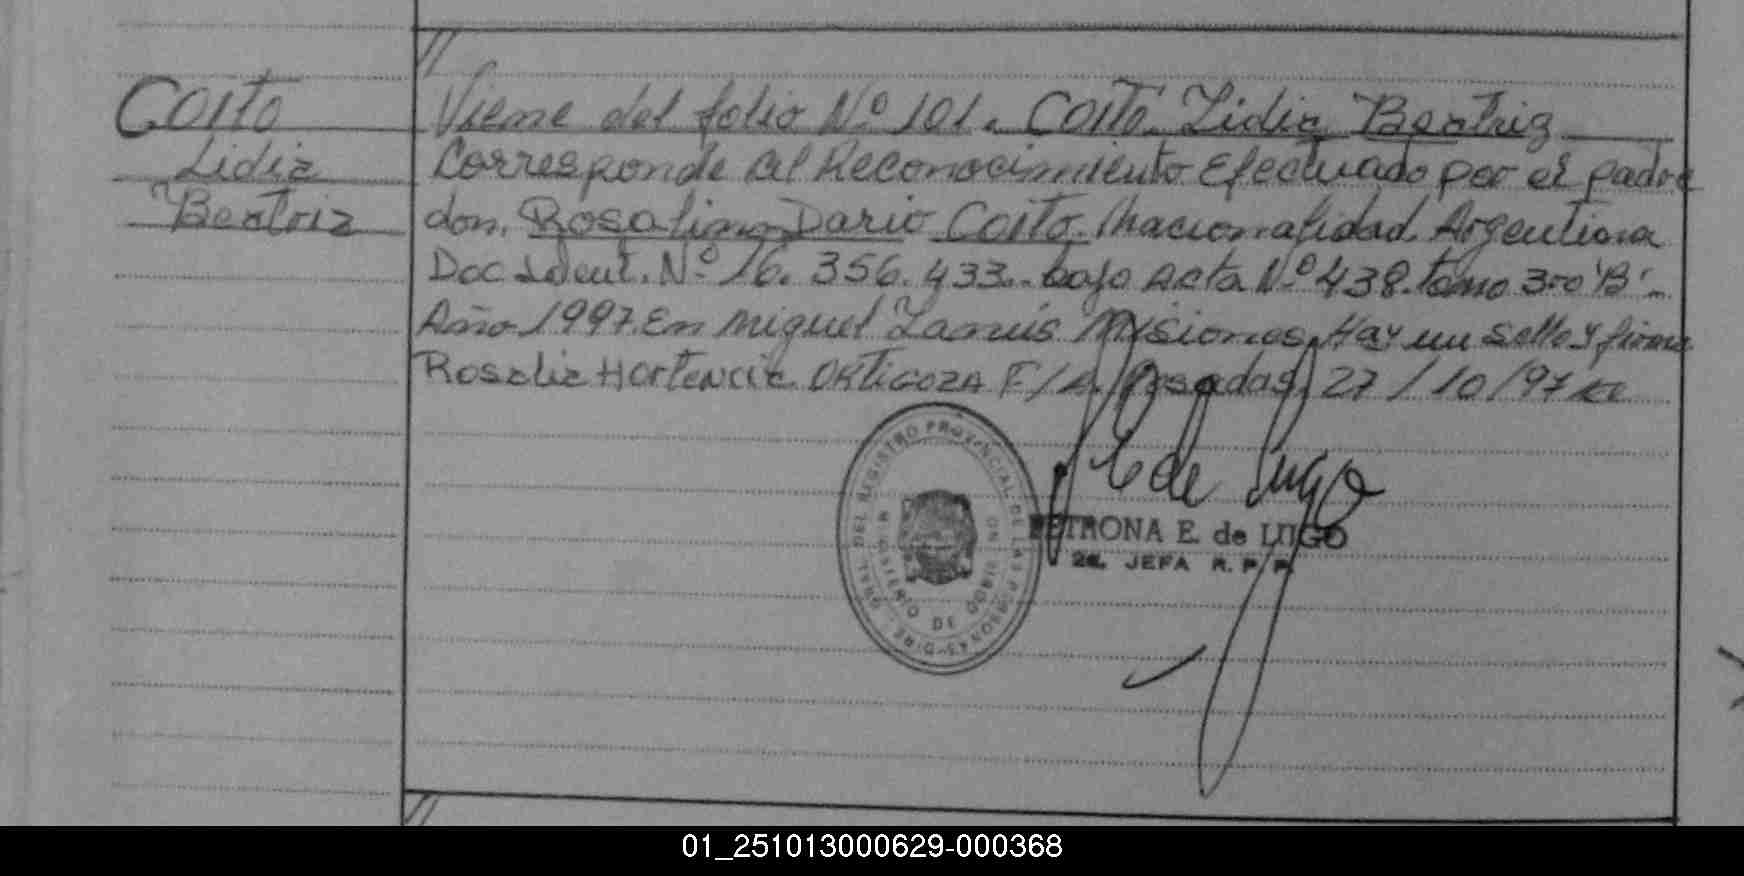 Coito
Lidia
Beatriz
Viene del folio Nº 101. Coito. Lidia Beatriz
Corresponde al Reconocimiento Efectuado por el padre
don, Rosalino Dario Coito. nacionalidad Argentina
Doc Ident. Nº 16.356.433.- bajo Acta Nº 438. tomo 3ro "B"-
Año 1997. En Miguel Lanús Misiones. Hay un sello y firma
Rosalia Hortencia ORTIGOZA F/A. Posadas, 27/10/97
DIRE. GRAL. DEL REGISTRO PROVINCIAL DE LAS PERSONAS
MINISTERIO DE GOBIERNO
E de Lugo
PETRONA E. de LUGO
2a. JEFA R. P. P.
01_251013000629-000368